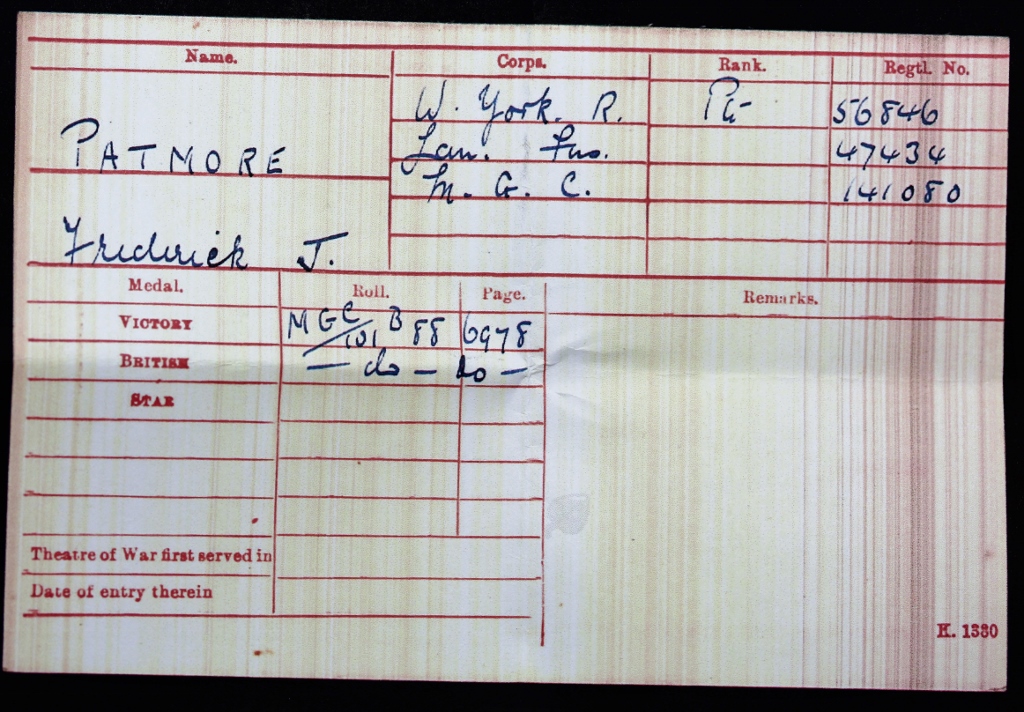 Name. Corps. Rank. Regtl. No.
W. York. R. Pte 56846
PATMORE Lan. Fus. 47434
M. G. C. 141080
Frederick J.
Medal. Roll. Page. Remarks.
VICTORY MGC/101 B 88 6978
BRITISH — do — do —
STAR
Theatre of War first served in
Date of entry therein
K. 1380